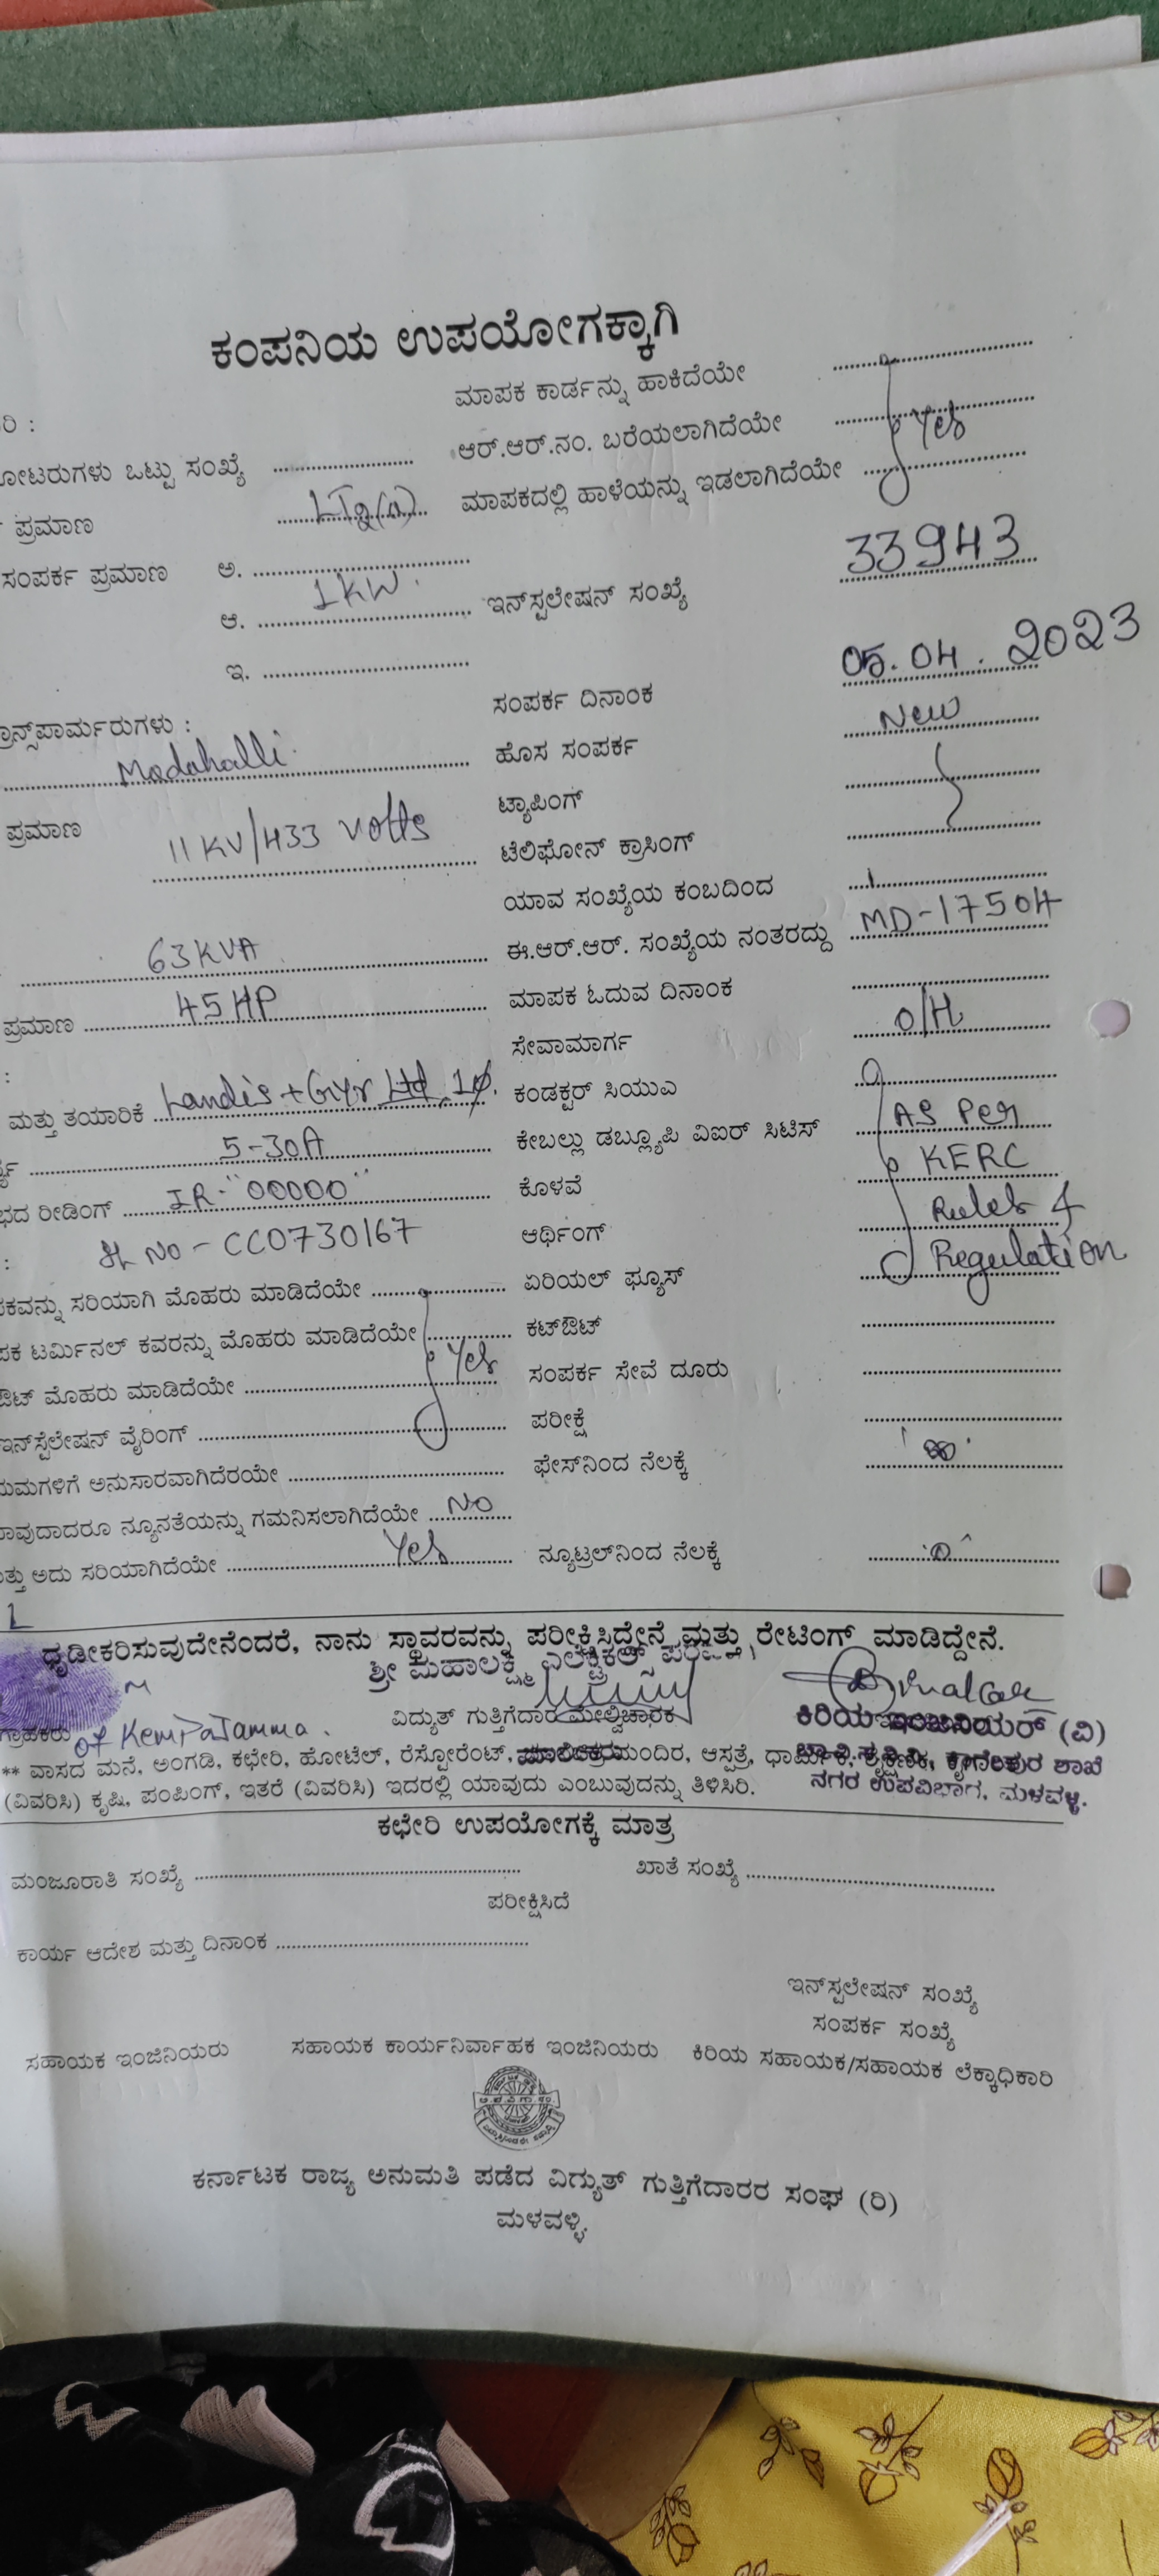 ಕಂಪನಿಯ ಉಪಯೋಗಕ್ಕಾಗಿ
ಮಾಪಕ ಕಾರ್ಡನ್ನು ಹಾಕಿದೆಯೇ
ರಿ :
ಆರ್.ಆರ್.ನಂ. ಬರೆಯಲಾಗಿದೆಯೇ Yes
ೋಟರುಗಳು ಒಟ್ಟು ಸಂಖ್ಯೆ
ಮಾಪಕದಲ್ಲಿ ಹಾಳೆಯನ್ನು ಇಡಲಾಗಿದೆಯೇ
ಪ್ರಮಾಣ LT2(a)
ಸಂಪರ್ಕ ಪ್ರಮಾಣ ಅ.
ಆ. 1KW. ಇನ್‌ಸ್ಟಲೇಷನ್ ಸಂಖ್ಯೆ 33943
ಇ.
ಸಂಪರ್ಕ ದಿನಾಂಕ 05.04.2023
ರಾನ್ಸ್‌ಪಾರ್ಮರುಗಳು :
Madahalli ಹೊಸ ಸಂಪರ್ಕ New
ಟ್ಯಾಪಿಂಗ್
ಪ್ರಮಾಣ 11KV/433 Volts ಟೆಲಿಫೋನ್ ಕ್ರಾಸಿಂಗ್
ಯಾವ ಸಂಖ್ಯೆಯ ಕಂಬದಿಂದ
63KVA ಈ.ಆರ್.ಆರ್. ಸಂಖ್ಯೆಯ ನಂತರದ್ದು MD-17504
ಪ್ರಮಾಣ 45HP ಮಾಪಕ ಓದುವ ದಿನಾಂಕ
: ಸೇವಾಮಾರ್ಗ O/H
ಮತ್ತು ತಯಾರಿಕೆ Landis+Gyr Ltd 1ø. ಕಂಡಕ್ಟರ್ ಸಿಯುಎ
5-30A ಕೇಬಲ್ಲು ಡಬ್ಲ್ಯೂಪಿ ವಿಐರ್ ಸಿಟಿಸ್ AS Per
ಭದ ರೀಡಿಂಗ್ IR-"00000" ಕೊಳವೆ KERC
: Sl No - CC0730167 ಆರ್ಥಿಂಗ್ Rules &
ಪಕವನ್ನು ಸರಿಯಾಗಿ ಮೊಹರು ಮಾಡಿದೆಯೇ ಏರಿಯಲ್ ಫ್ಯೂಸ್ Regulation
ಪಕ ಟರ್ಮಿನಲ್ ಕವರನ್ನು ಮೊಹರು ಮಾಡಿದೆಯೇ ಕಟ್‌ಔಟ್
ಔಟ್ ಮೊಹರು ಮಾಡಿದೆಯೇ Yes ಸಂಪರ್ಕ ಸೇವೆ ದೂರು
ಇನ್‌ಸ್ಟೆಲೇಷನ್ ವೈರಿಂಗ್ ಪರೀಕ್ಷೆ
ಯಮಗಳಿಗೆ ಅನುಸಾರವಾಗಿದೆರಯೇ ಫೇಸ್‌ನಿಂದ ನೆಲಕ್ಕೆ
ಾವುದಾದರೂ ನ್ಯೂನತೆಯನ್ನು ಗಮನಿಸಲಾಗಿದೆಯೇ No
ತ್ತು ಅದು ಸರಿಯಾಗಿದೆಯೇ Yes ನ್ಯೂಟ್ರಲ್‌ನಿಂದ ನೆಲಕ್ಕೆ
ಧೃಡೀಕರಿಸುವುದೇನೆಂದರೆ, ನಾನು ಸ್ಥಾವರವನ್ನು ಪರೀಕ್ಷಿಸಿದ್ದೇನೆ ಮತ್ತು ರೇಟಿಂಗ್ ಮಾಡಿದ್ದೇನೆ.
ಶ್ರೀ ಮಹಾಲಕ್ಷ್ಮಿ ಎಲೆಕ್ಟ್ರಿಕಲ್ಸ್
ಗ್ರಾಹಕರು of Kempajamma. ವಿದ್ಯುತ್ ಗುತ್ತಿಗೆದಾರ ಮೇಲ್ವಿಚಾರಕ ಕಿರಿಯ ಇಂಜಿನಿಯರ್ (ವಿ)
** ವಾಸದ ಮನೆ, ಅಂಗಡಿ, ಕಛೇರಿ, ಹೋಟೆಲ್, ರೆಸ್ಟೋರೆಂಟ್, ಮಂದಿರ, ಆಸ್ಪತ್ರೆ, ಶಾಖೆ
(ವಿವರಿಸಿ) ಕೃಷಿ, ಪಂಪಿಂಗ್, ಇತರೆ (ವಿವರಿಸಿ) ಇದರಲ್ಲಿ ಯಾವುದು ಎಂಬುವುದನ್ನು ತಿಳಿಸಿರಿ. ನಗರ ಉಪವಿಭಾಗ, ಮಳವಳ್ಳಿ.
ಕಛೇರಿ ಉಪಯೋಗಕ್ಕೆ ಮಾತ್ರ
ಮಂಜೂರಾತಿ ಸಂಖ್ಯೆ ಖಾತೆ ಸಂಖ್ಯೆ
ಪರೀಕ್ಷಿಸಿದೆ
ಕಾರ್ಯ ಆದೇಶ ಮತ್ತು ದಿನಾಂಕ
ಇನ್‌ಸ್ಟಲೇಷನ್ ಸಂಖ್ಯೆ
ಸಂಪರ್ಕ ಸಂಖ್ಯೆ
ಸಹಾಯಕ ಇಂಜಿನಿಯರು ಸಹಾಯಕ ಕಾರ್ಯನಿರ್ವಾಹಕ ಇಂಜಿನಿಯರು ಕಿರಿಯ ಸಹಾಯಕ/ಸಹಾಯಕ ಲೆಕ್ಕಾಧಿಕಾರಿ
ಕರ್ನಾಟಕ ರಾಜ್ಯ ಅನುಮತಿ ಪಡೆದ ವಿದ್ಯುತ್ ಗುತ್ತಿಗೆದಾರರ ಸಂಘ (ರಿ)
ಮಳವಳ್ಳಿ.